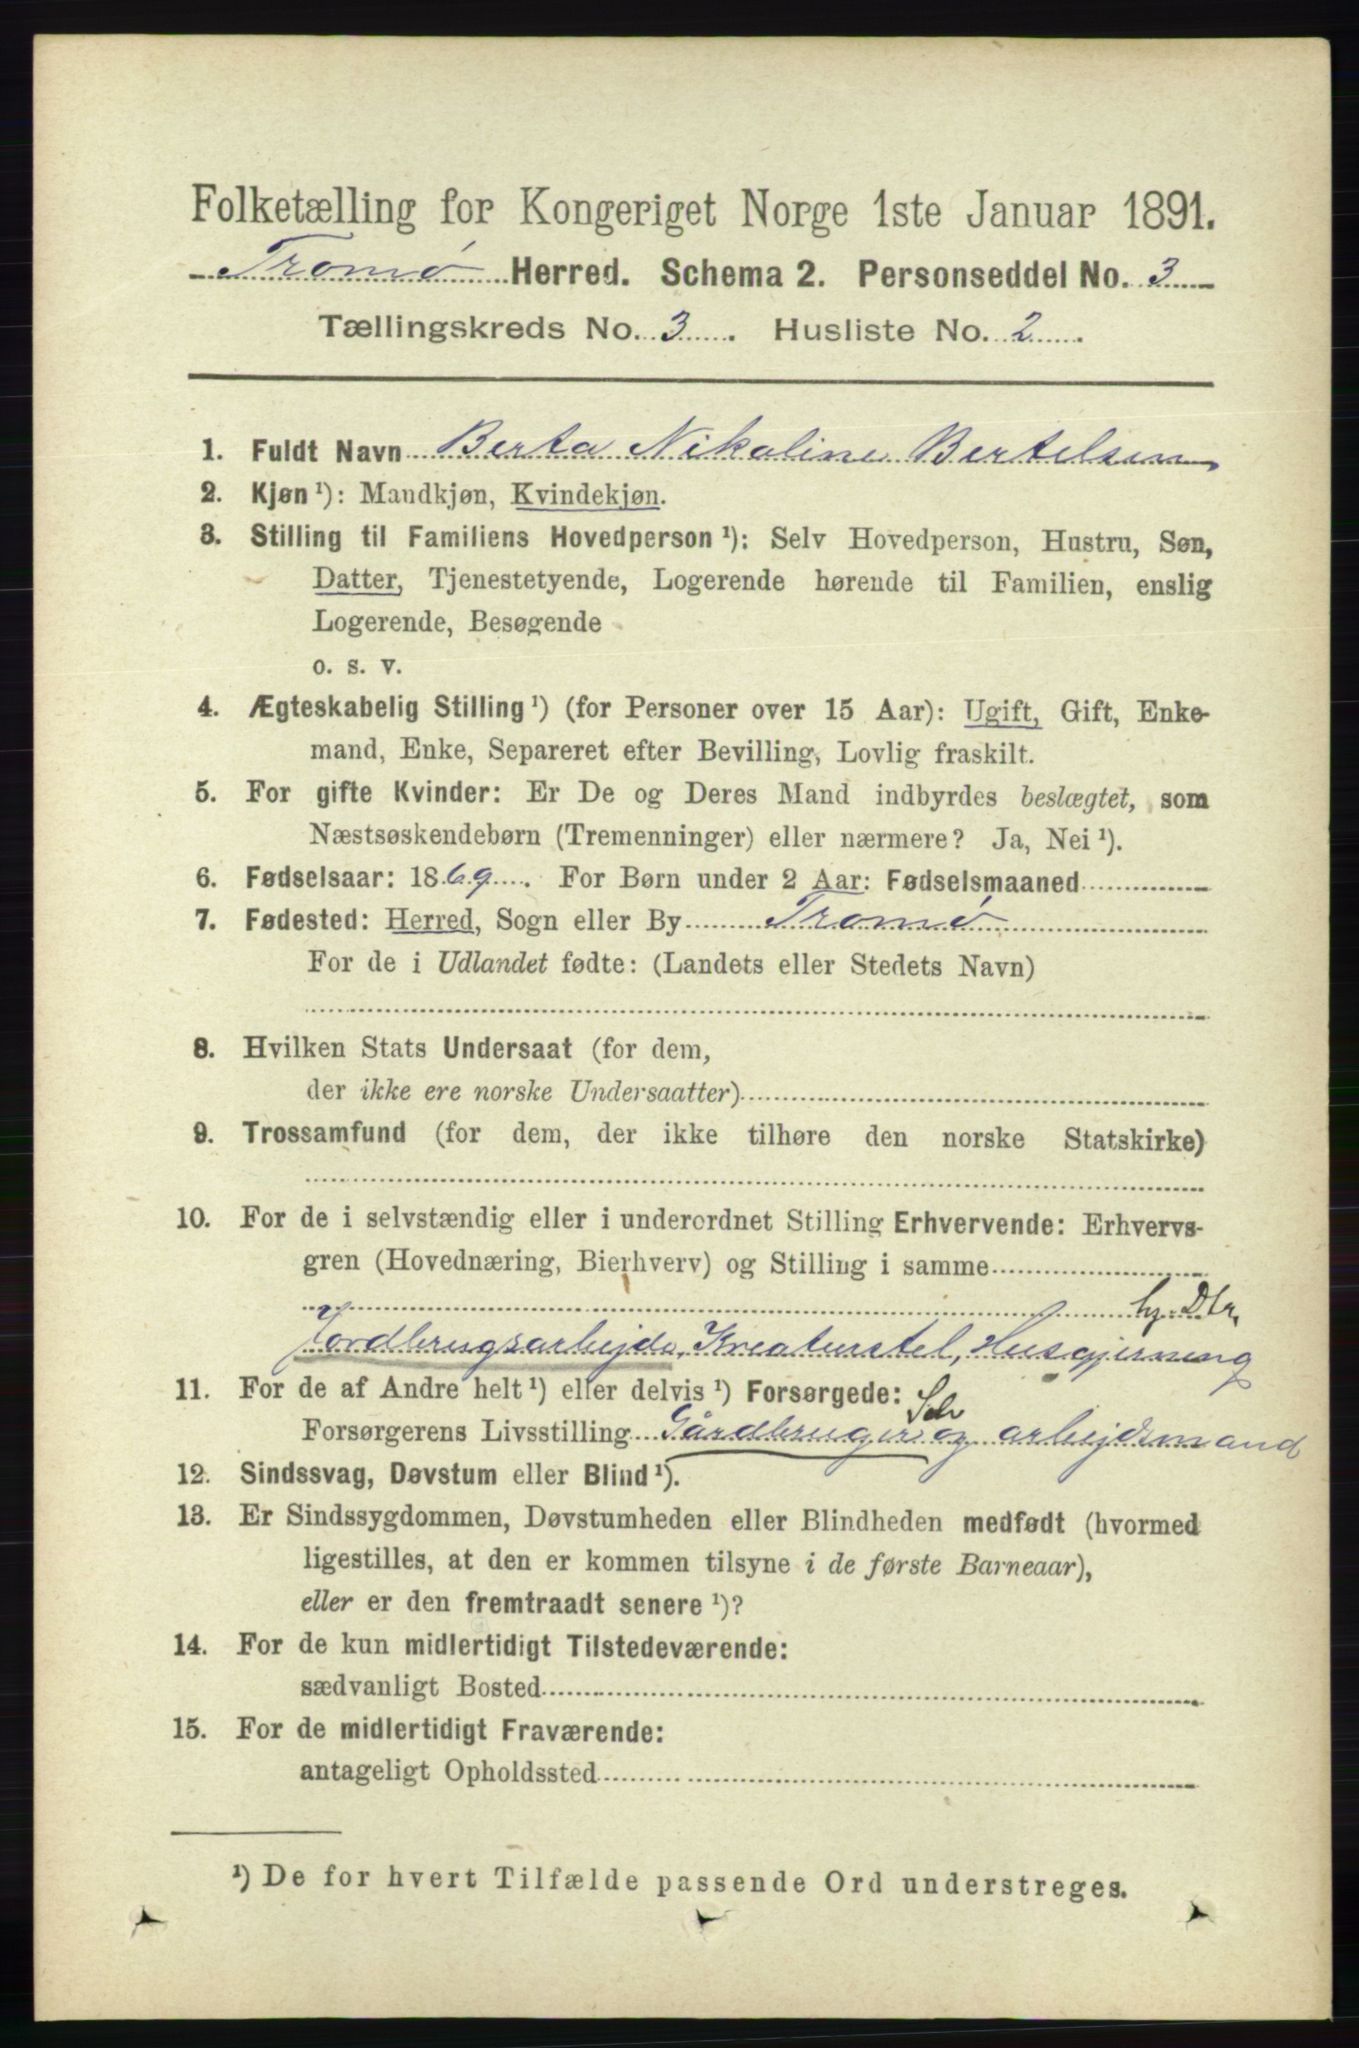 Folketælling for Kongeriget Norge 1ste Januar 1891.
Tromø Herred. Schema 2. Personseddel No. 3
Tællingskreds No. 3. Husliste No. 2.
1. Fuldt Navn Berta Nikoline Bertelsen
2. Kjøn ¹): Mandkjøn, Kvindekjøn.
3. Stilling til Familiens Hovedperson ¹): Selv Hovedperson, Hustru, Søn,
Datter, Tjenestetyende, Logerende hørende til Familien, enslig
Logerende, Besøgende
o. s. v.
4. Ægteskabelig Stilling ¹) (for Personer over 15 Aar): Ugift, Gift, Enke-
mand, Enke, Separeret efter Bevilling, Lovlig fraskilt.
5. For gifte Kvinder: Er De og Deres Mand indbyrdes beslægtet, som
Næstsøskendebørn (Tremenninger) eller nærmere? Ja, Nei ¹).
6. Fødselsaar: 1869. For Børn under 2 Aar: Fødselsmaaned
7. Fødested: Herred, Sogn eller By Tromø
For de i Udlandet fødte: (Landets eller Stedets Navn)
8. Hvilken Stats Undersaat (for dem,
der ikke ere norske Undersaatter)
9. Trossamfund (for dem, der ikke tilhøre den norske Statskirke)
10. For de i selvstændig eller i underordnet Stilling Erhvervende: Erhvervs-
gren (Hovednæring, Bierhverv) og Stilling i samme
hj. Dtr.
Jordbrugsarbejde, Kreaturstel, Husgjerning
11. For de af Andre helt ¹) eller delvis ¹) Forsørgede:
Selv
Forsørgerens Livsstilling Gårdbruger og arbejdsmand
12. Sindssvag, Døvstum eller Blind ¹).
13. Er Sindssygdommen, Døvstumheden eller Blindheden medfødt (hvormed
ligestilles, at den er kommen tilsyne i de første Barneaar),
eller er den fremtraadt senere ¹)?
14. For de kun midlertidigt Tilstedeværende:
sædvanligt Bosted
15. For de midlertidigt Fraværende:
antageligt Opholdssted
¹) De for hvert Tilfælde passende Ord understreges.